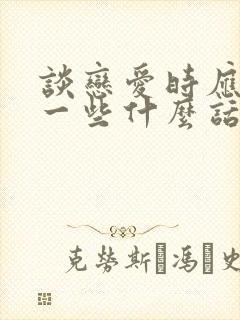 談戀愛時應
一些什麼話
克勞斯·馮·史